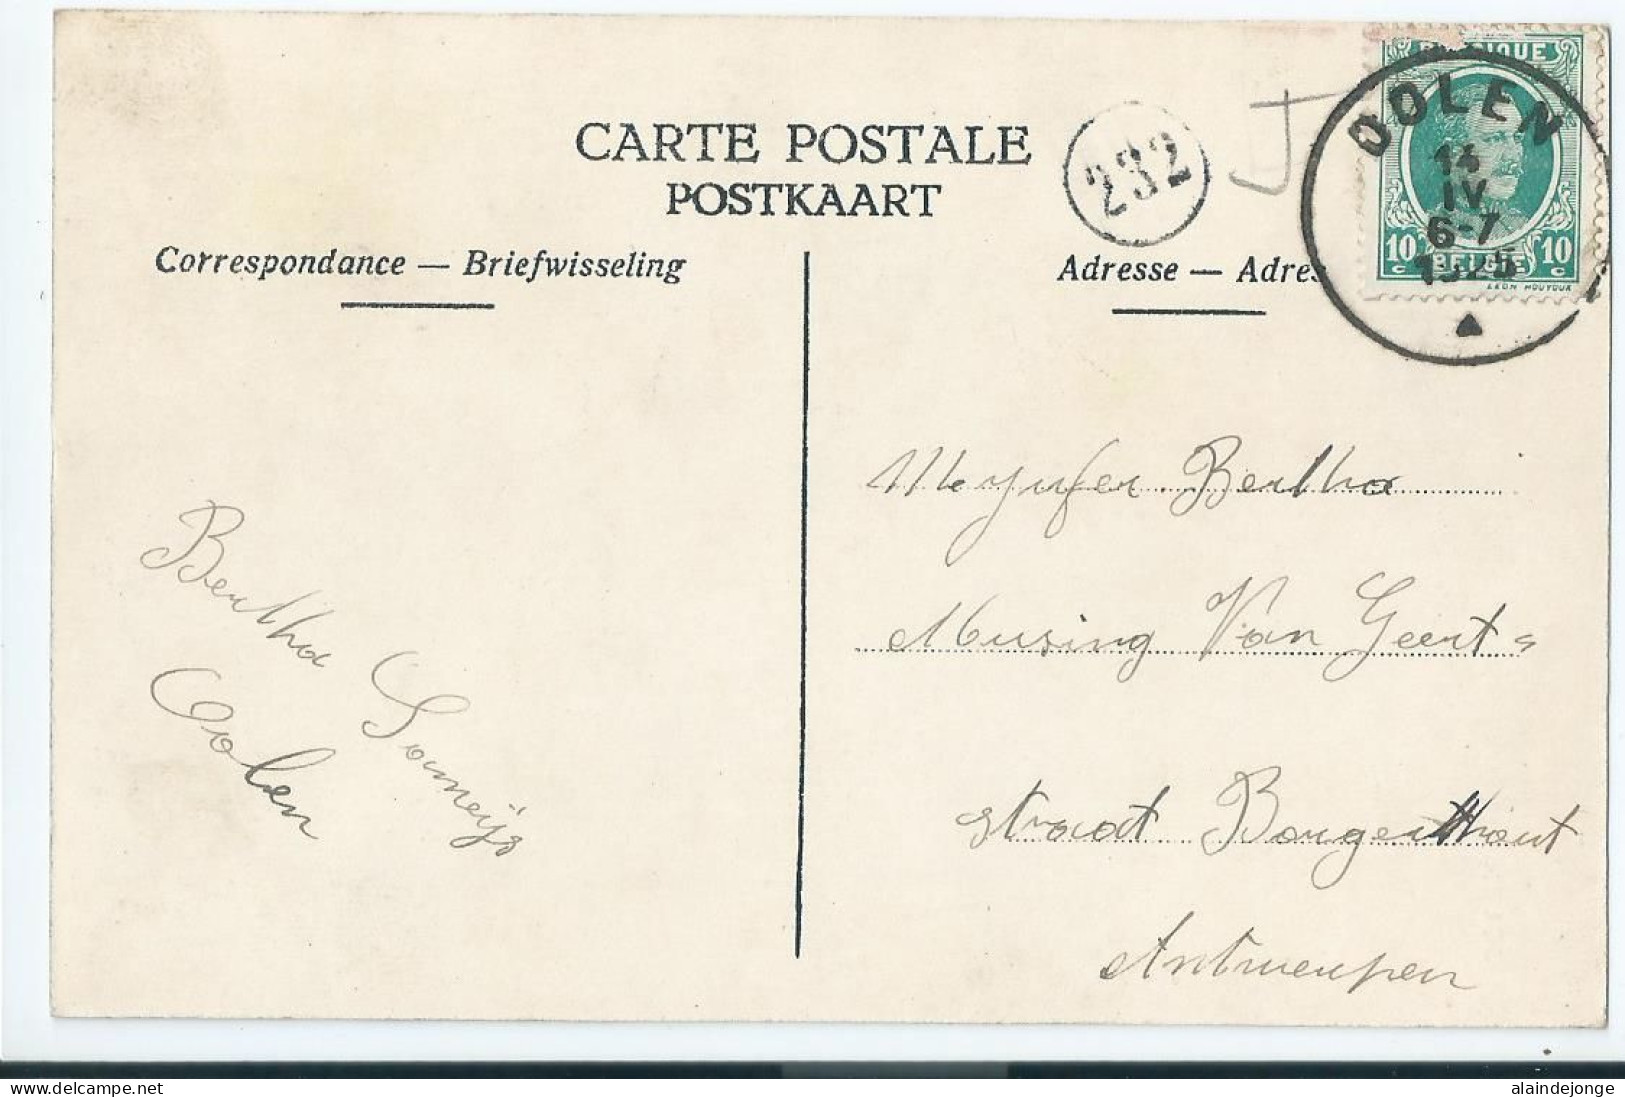 CARTE POSTALE
POSTKAART
Correspondance — Briefwisseling
Adresse — Adres
232
J
BELGIQUE
OOLEN
14
IV
6-7
1925
10 c BELGIE 10 c
LEON HOUYOUX
Bertha Someijs
Oolen
Mejufer Bertha
Musing Van Geert
straat Borgerhout
Antwerpen
www.delcampe.net
alaindejonge